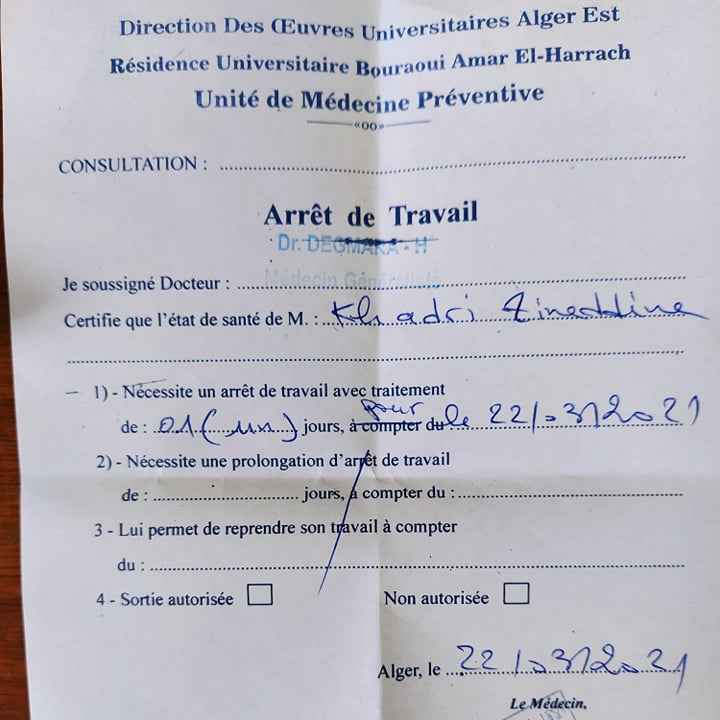 Direction Des Œuvres Universitaires Alger Est
Résidence Universitaire Bouraoui Amar El-Harrach
Unité de Médecine Préventive
«oo»
CONSULTATION : ....................
Arrêt de Travail
Dr. DEGMARA - H
Médecin Généraliste
Je soussigné Docteur : ....................
Certifie que l'état de santé de M. : Khadri Zineddine
– 1) - Nécessite un arrêt de travail avec traitement
pour
de : 01 (un) jours, à compter du le 22/03/2021
2) - Nécessite une prolongation d'arrêt de travail
de : .................... jours, à compter du : ....................
3 - Lui permet de reprendre son travail à compter
du : ....................
4 - Sortie autorisée Non autorisée
Alger, le 22/03/2021
Le Médecin,